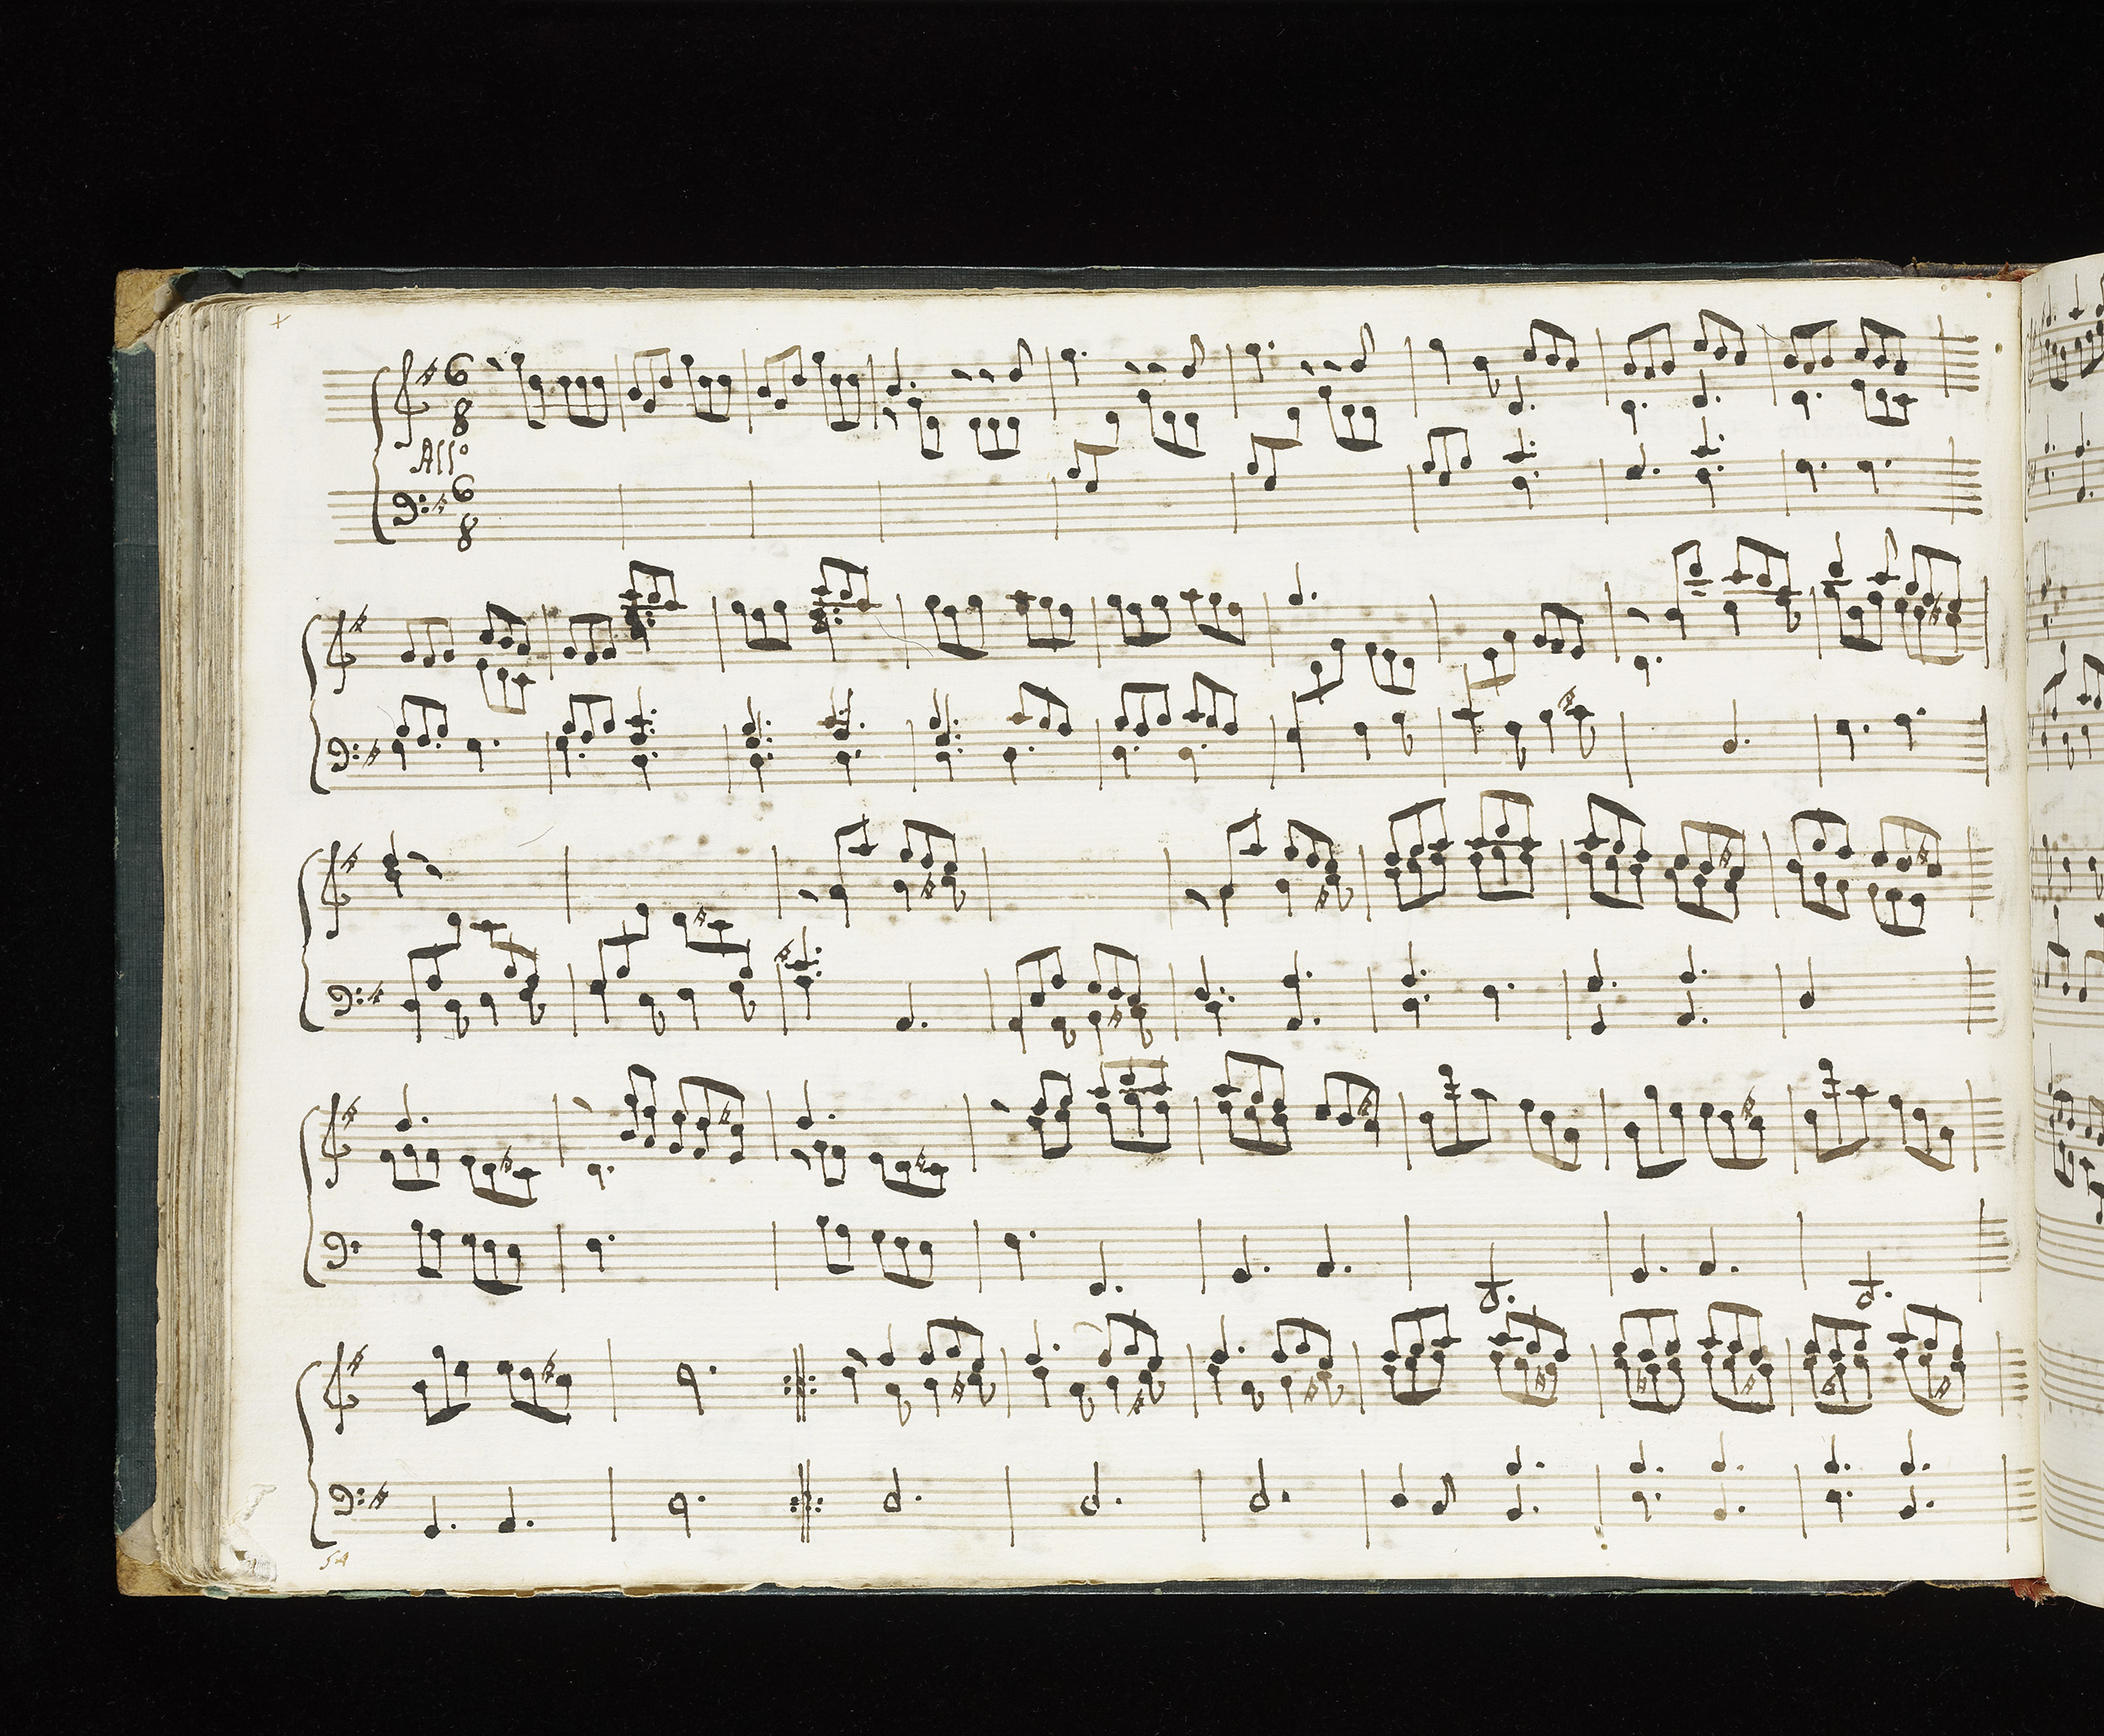 6
8
Allo
6
8
54